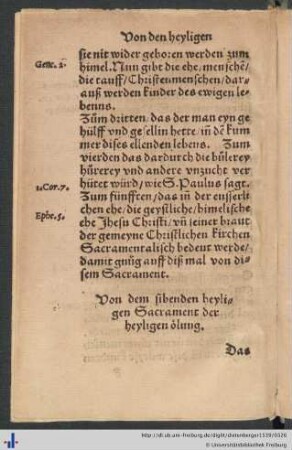 Von den heyligen
sie nit wider geboren werden zum
himel. Nun gibt die ehe/menschē/
Gene. 2.
die tauff/Christenmenschen/dar-
auß werden kinder des ewigen le-
benns.
Zům dritten/das der man eyn ge-
hülff vnd gesellin hette/in dē kum
mer dises ellenden lebens. Zum
vierden das dardurch die bůlerey
hůrerey vnd andere vnzucht ver
hütet würd/wie S. Paulus sagt.
1. Cor. 7.
Zum fünfften/das in der eusserli
chen ehe/die geystliche/himelische
Ephe. 5.
ehe Jhesu Christi/vñ seiner braut
der gemeyne Christlichen kirchen
Sacramentalisch bedeut werde/
damit gnůg auff diß mal von di-
sem Sacrament.
Von dem sibenden heyli-
gen Sacrament der
heyligen ölung.
Das
© Universitätsbibliothek Freiburg